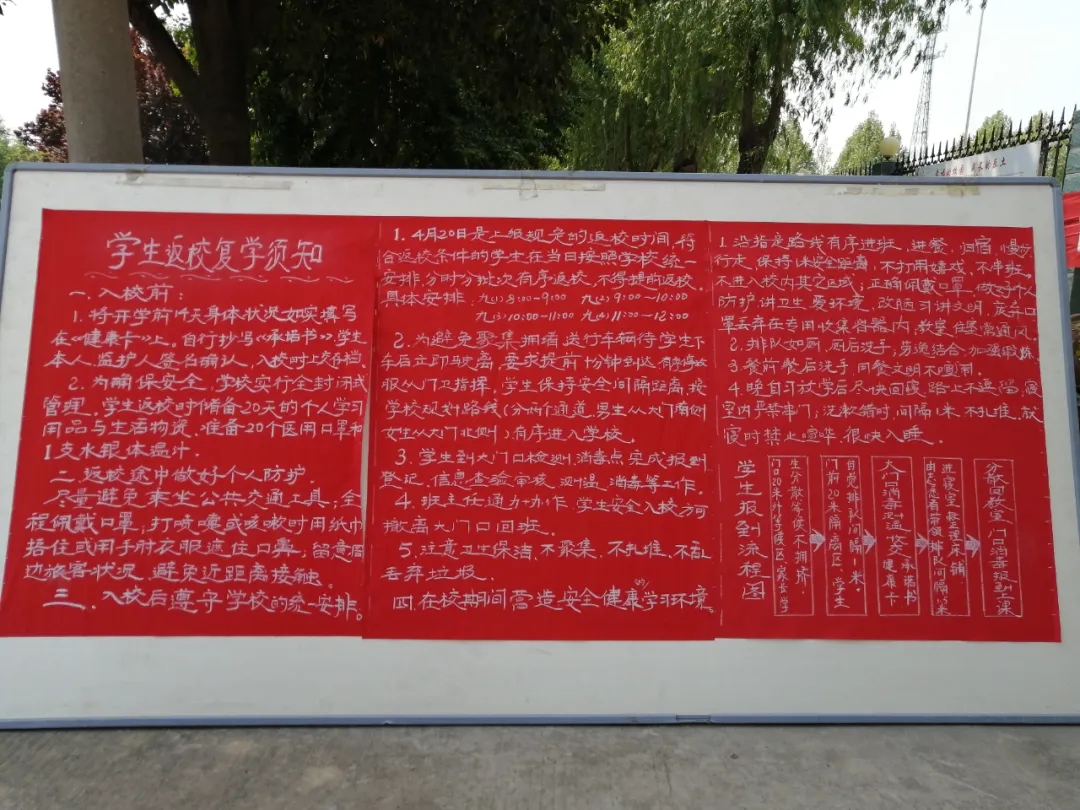 学生返校复学须知
一、入校前：
1.将开学前14天身体状况如实填写
在《健康卡》上。自行抄写《承诺书》,学生
本人、监护人签名确认,入校时上交存档.
2.为确保安全,学校实行全封闭式
管理,学生返校时储备20天的个人学习
用品与生活物资.准备20个医用口罩和
1支水银体温计.
二、返校途中做好个人防护.
尽量避免乘坐公共交通工具,全
程佩戴口罩,打喷嚏或咳嗽时用纸巾
捂住或用手肘衣服遮住口鼻,留意周
边旅客状况,避免近距离接触.
三、入校后遵守学校的统一安排。
1.4月20日是上级规定的返校时间,符
合返校条件的学生在当日按照学校统一
安排,分时分批次有序返校,不得提前返校.
具体安排:九(1)8:00-9:00 九(2)9:00-10:00
九(3)10:00-11:00 九(4)11:00-12:00
2.为避免聚集拥堵送行车辆待学生下
车后立即驶离,要求提前 分钟到达
服从门卫指挥,学生保持安全间隔距离,按
学校规划路线(分两个通道,男生从大门南侧
女生从大门北侧)有序进入学校。
3.学生到大门口检测、消毒点完成报到
登记、信息查验审核、测温、消毒等工作。
4.班主任通力协作,学生安全入校方可
撤离大门口回班.
5.注意卫生保洁,不聚集,不扎堆,不乱
丢弃垃圾.
四.在校期间营造安全健康的学习环境。
1.沿指定路线有序进班,进餐,归宿,慢步
行走,保持保安全距离,不打闹嬉戏,不串班,
不进入校内其它区域;正确佩戴口罩,做好个人
防护讲卫生爱环境,改陋习讲文明,废弃口
罩丢弃在专用收集容器内,教室住室常通风
2.排队如厕,厕后洗手,劳逸结合,加强锻炼
3.餐前餐后洗手,用餐文明不喧闹.
4.晚自习放学后尽快回寝,路上不逗留,寝
室内严禁串门;洗漱错时,间隔1米,不扎堆,就
寝时禁止喧哗,很快入睡.
学生报到流程图
门口20米外等候区,家长学
生分散等候不拥挤.
门前20米隔离区,学生
自觉排队间隔一米.
大门口消毒测温收交承诺书
健康卡
由志愿者带领排队间隔1米
进寝室长整理床铺
分散回教室门口消毒报到上课